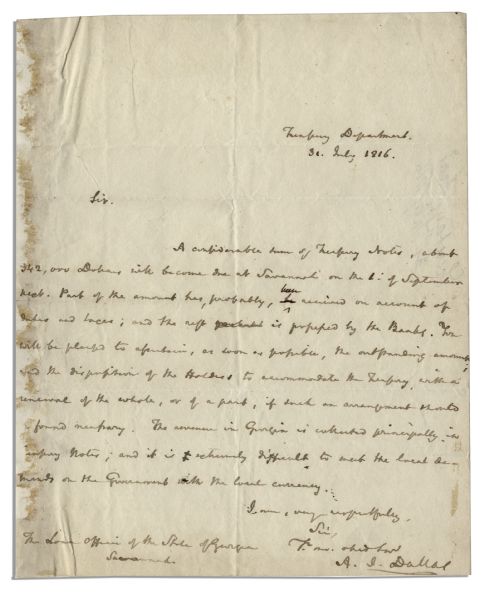 Treasury Department.
31. July 1816.
Sir.
A considerable sum of Treasury Notes, about
342,000 Dollars will become due at Savannah on the 1: of September
next. Part of the amount has, probably, been received on account of
duties and taxes; and the rest is possessed by the Banks. You
will be pleased to ascertain, as soon as possible, the outstanding amount,
and the disposition of the Holders to accommodate the Treasury, with a
renewal of the whole, or of a part, if such an arrangement should
be found necessary. The revenue in Georgia is collected principally in
Treasury Notes; and it is extremely difficult to meet the local de-
mands on the Government with the local currency.
I am, very respectfully,
Sir,
Yr. mo. obed Serv
A. J. Dallas
The Loan Officer of the State of Georgia
Savannah.